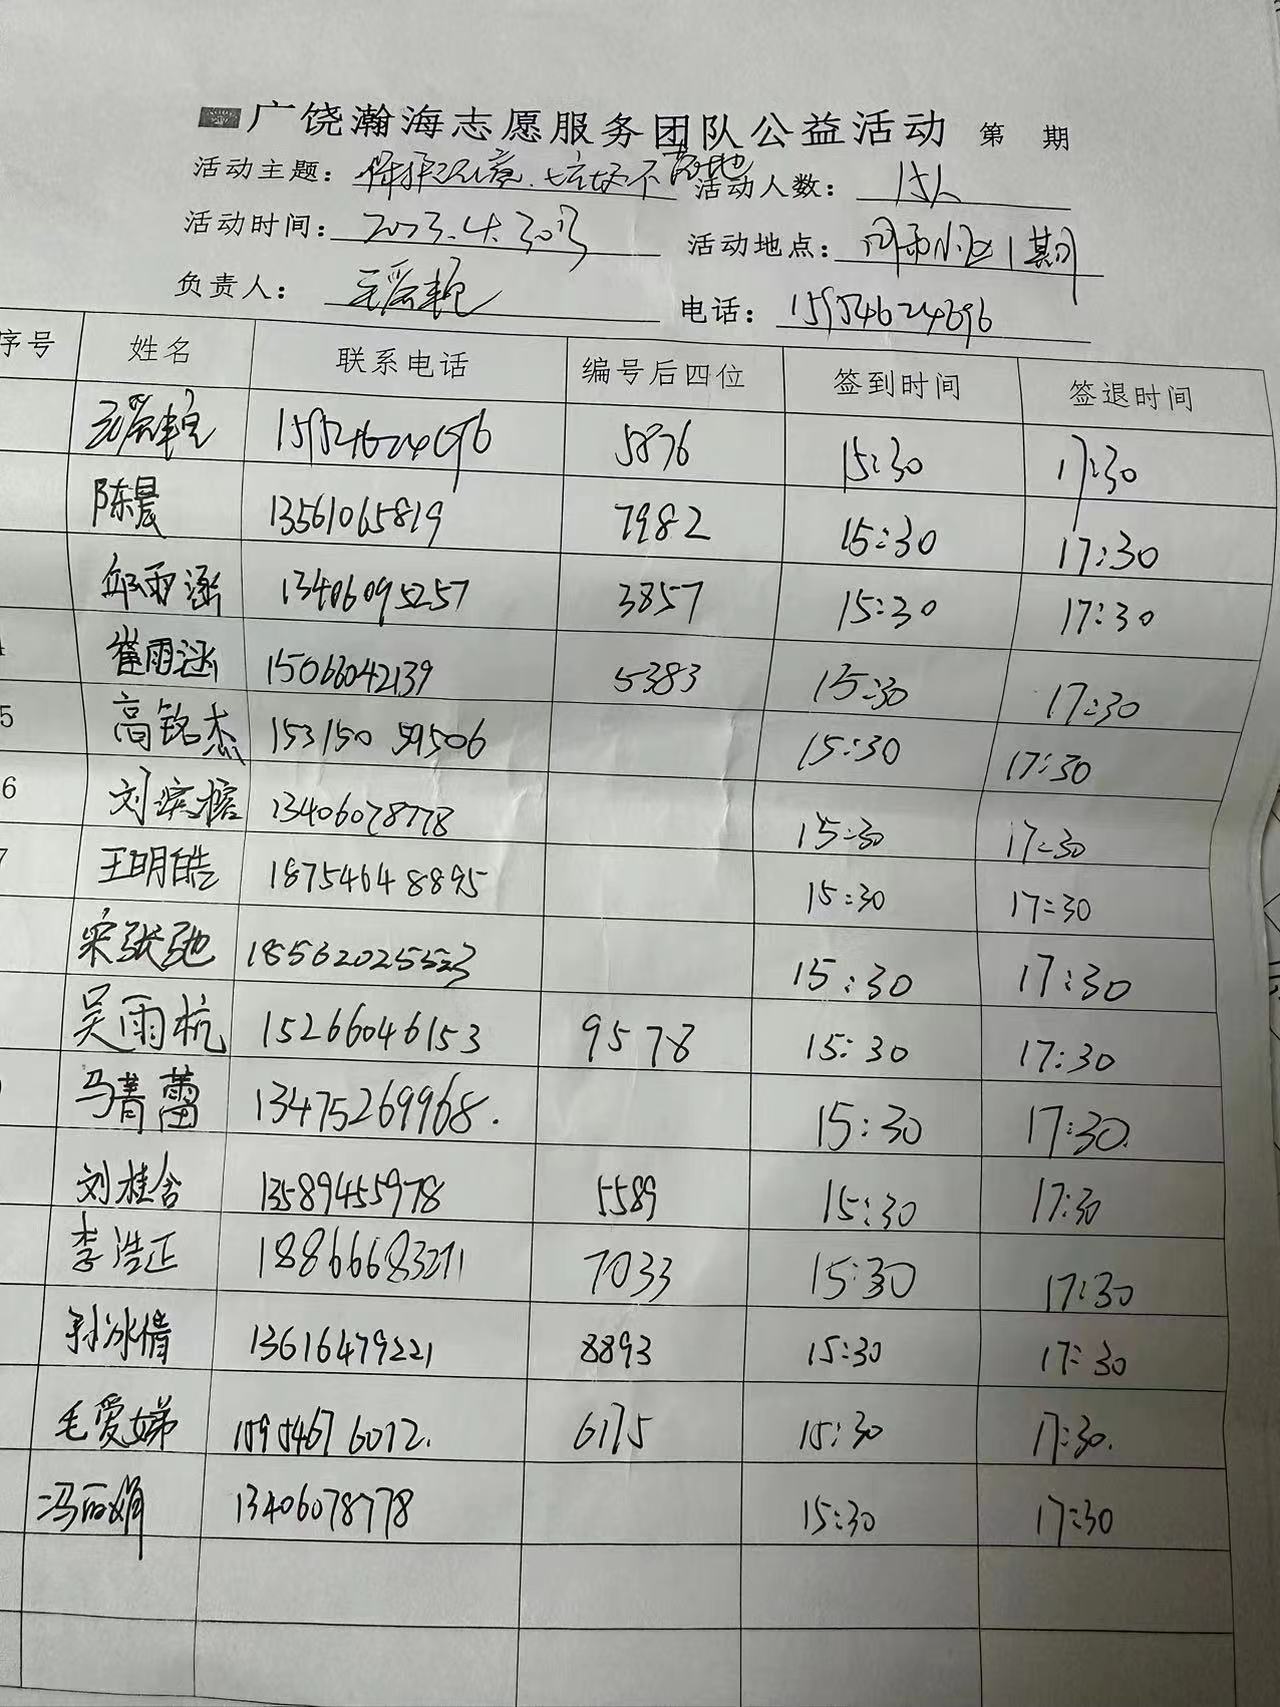 广饶瀚海志愿服务团队公益活动 第 期
活动主题: 保护环境、垃圾不落地 活动人数: 15人
活动时间: 2023.4.30号 活动地点: 小区1期
负责人: 电话: 15954624696
序号 姓名 联系电话 编号后四位 签到时间 签退时间
15954624696 5876 15:30 17:30
陈晨 13561065819 7982 15:30 17:30
邱雨涵 13406095257 3857 15:30 17:30
崔雨涵 15066042139 5383 15:30 17:30
5 高铭杰 15315059506 15:30 17:30
6 刘滨榕 13406078778 15:30 17:30
7 王明皓 18754648895 15:30 17:30
宋张弛 18562025523 15:30 17:30
吴雨杭 15266046153 9578 15:30 17:30
马菁蕾 13475269968. 15:30 17:30.
刘桂含 13589455978 5589 15:30 17:30
李浩正 18866683271 7033 15:30 17:30
孙冰倩 13616479221 8893 15:30 17:30
毛爱娣 15954676012. 6175 15:30 17:30.
冯丽娟 13406078778 15:30 17:30